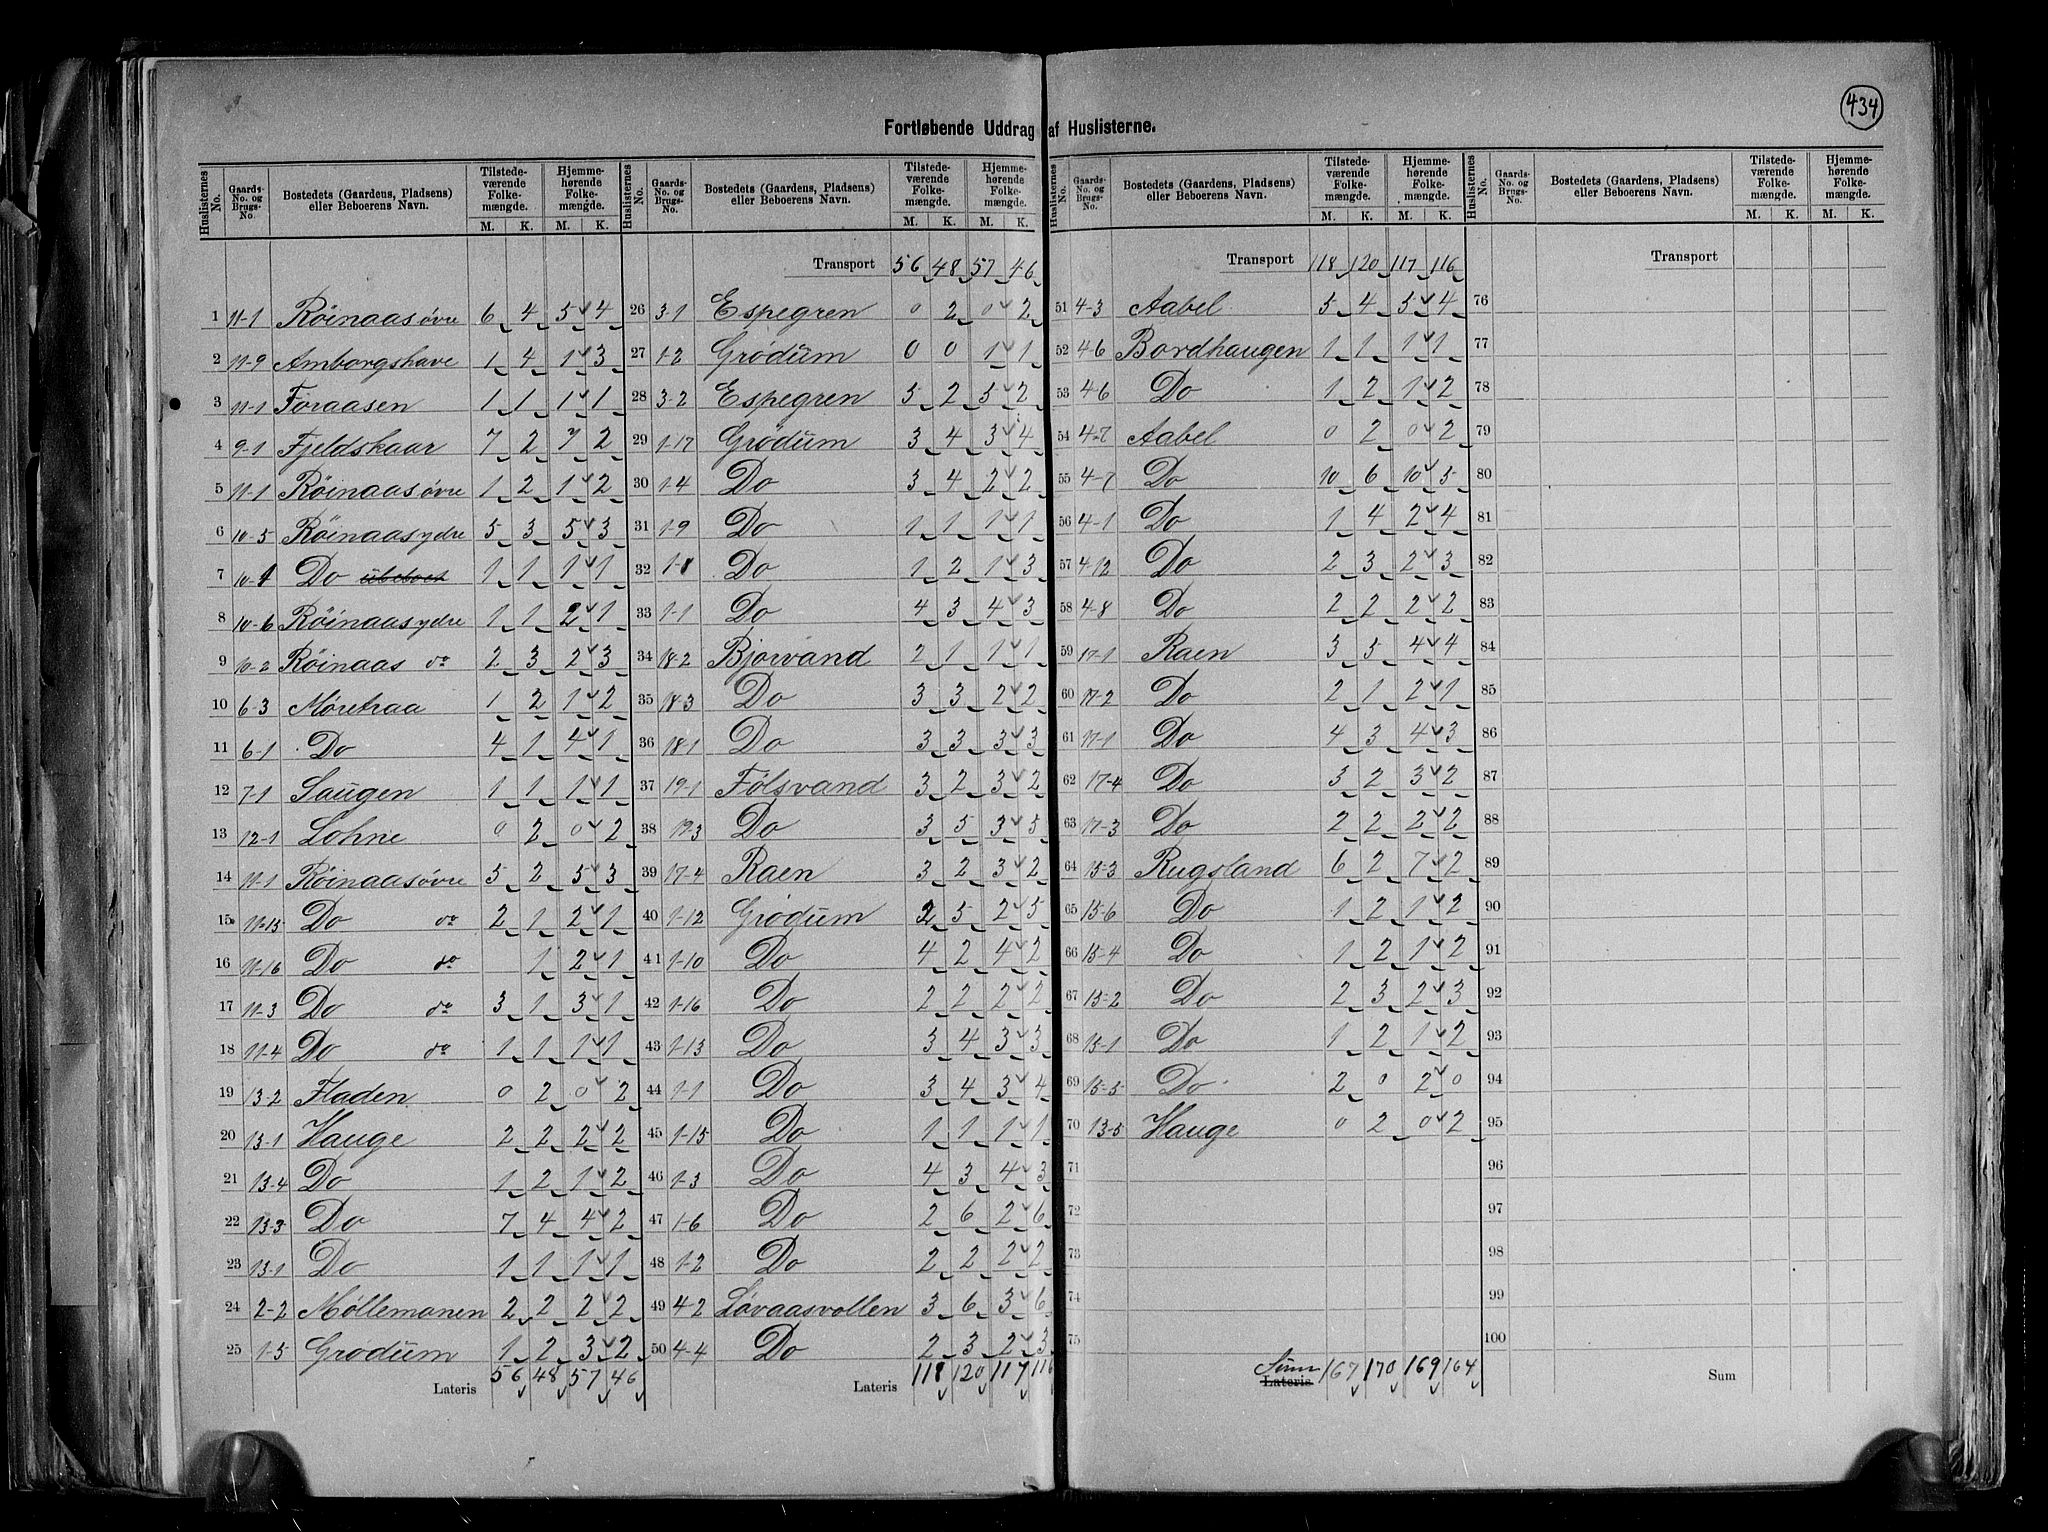 434
Fortløbende Uddrag af Huslisterne.
Huslisternes No. Gaards-No. og Brugs-No. Bostedets (Gaardens, Pladsens) eller Beboerens Navn. Tilstedeværende Folkemængde. M. K. Hjemmehørende Folkemængde. M. K.
1 11-1 Røinaas øvre 6 4 5 4
2 11-9 Amborgshave 1 4 1 3
3 11-1 Foraasen 1 1 1 1
4 9-1 Fjeldskaar 7 2 7 2
5 11-1 Røinaas øvre 1 2 1 2
6 10-5 Røinaas ydre 5 3 5 3
7 10-1 Do ubeboet 1 1 1 1
8 10-6 Røinaas ydre 1 1 2 1
9 10-2 Røinaas do 2 3 2 3
10 6-3 Møretraa 1 2 1 2
11 6-1 Do 4 1 4 1
12 7-1 Saugen 1 1 1 1
13 12-1 Lohne 0 2 0 2
14 11-1 Røinaas øvre 5 2 5 3
15 11-15 Do do 2 1 2 1
16 11-16 Do do 1 2 1
17 11-3 Do do 3 1 3 1
18 11-4 Do do 1 1 1 1
19 13-2 Fladen 0 2 0 2
20 13-1 Hauge 2 2 2 2
21 13-4 Do 1 2 1 2
22 13-3 Do 7 4 4 2
23 13-1 Do 1 1 1 1
24 2-2 Møllemanen 2 2 2 2
25 1-5 Grødum 1 2 3 2
Lateris 56 48 57 46
Huslisternes No. Gaards-No. og Brugs-No. Bostedets (Gaardens, Pladsens) eller Beboerens Navn. Tilstedeværende Folkemængde. M. K. Hjemmehørende Folkemængde. M. K.
Transport 56 48 57 46
26 3-1 Espegren 0 2 0 2
27 1-2 Grødum 0 0 1 1
28 3-2 Espegren 5 2 5 2
29 1-17 Grødum 3 4 3 4
30 1-4 Do 3 4 2 2
31 1-9 Do 1 1 1 1
32 1-8 Do 1 2 1 3
33 1-1 Do 4 3 4 3
34 18-2 Bjorvand 2 1 1 1
35 18-3 Do 3 3 2 2
36 18-1 Do 3 3 3 3
37 19-1 Følsvand 3 2 3 2
38 19-3 Do 3 5 3 5
39 17-4 Raen 3 2 3 2
40 1-12 Grødum 2 5 2 5
41 1-10 Do 4 2 4 2
42 1-16 Do 2 2 2 2
43 1-13 Do 3 4 3 3
44 1-1 Do 3 4 3 4
45 1-15 Do 1 1 1 1
46 1-3 Do 4 3 4 3
47 1-6 Do 2 6 2 6
48 1-2 Do 2 2 2 2
49 4-2 Løvaasvollen 3 6 3 6
50 4-4 Do 2 3 2 3
Lateris 118 120 117 116
Huslisternes No. Gaards-No. og Brugs-No. Bostedets (Gaardens, Pladsens) eller Beboerens Navn. Tilstedeværende Folkemængde. M. K. Hjemmehørende Folkemængde. M. K.
Transport 118 120 117 116
51 4-3 Aabel 5 4 5 4
52 4-6 Bordhaugen 1 1 1 1
53 4-6 Do 1 2 1 2
54 4-7 Aabel 0 2 0 2
55 4-7 Do 10 6 10 5
56 4-1 Do 1 4 2 4
57 4-12 Do 2 3 2 3
58 4-8 Do 2 2 2 2
59 17-1 Raen 3 5 4 4
60 17-2 Do 2 1 2 1
61 17-1 Do 4 3 4 3
62 17-4 Do 3 2 3 2
63 17-3 Do 2 2 2 2
64 15-3 Rugsland 6 2 7 2
65 15-6 Do 1 2 1 2
66 15-4 Do 1 2 1 2
67 15-2 Do 2 3 2 3
68 15-1 Do 1 2 1 2
69 15-5 Do 2 0 2 0
70 13-5 Hauge 0 2 0 2
71
72
73
74
75
Sum Lateris 167 170 169 164
Huslisternes No. Gaards-No. og Brugs-No. Bostedets (Gaardens, Pladsens) eller Beboerens Navn. Tilstedeværende Folkemængde. M. K. Hjemmehørende Folkemængde. M. K.
Transport
76
77
78
79
80
81
82
83
84
85
86
87
88
89
90
91
92
93
94
95
96
97
98
99
100
Sum